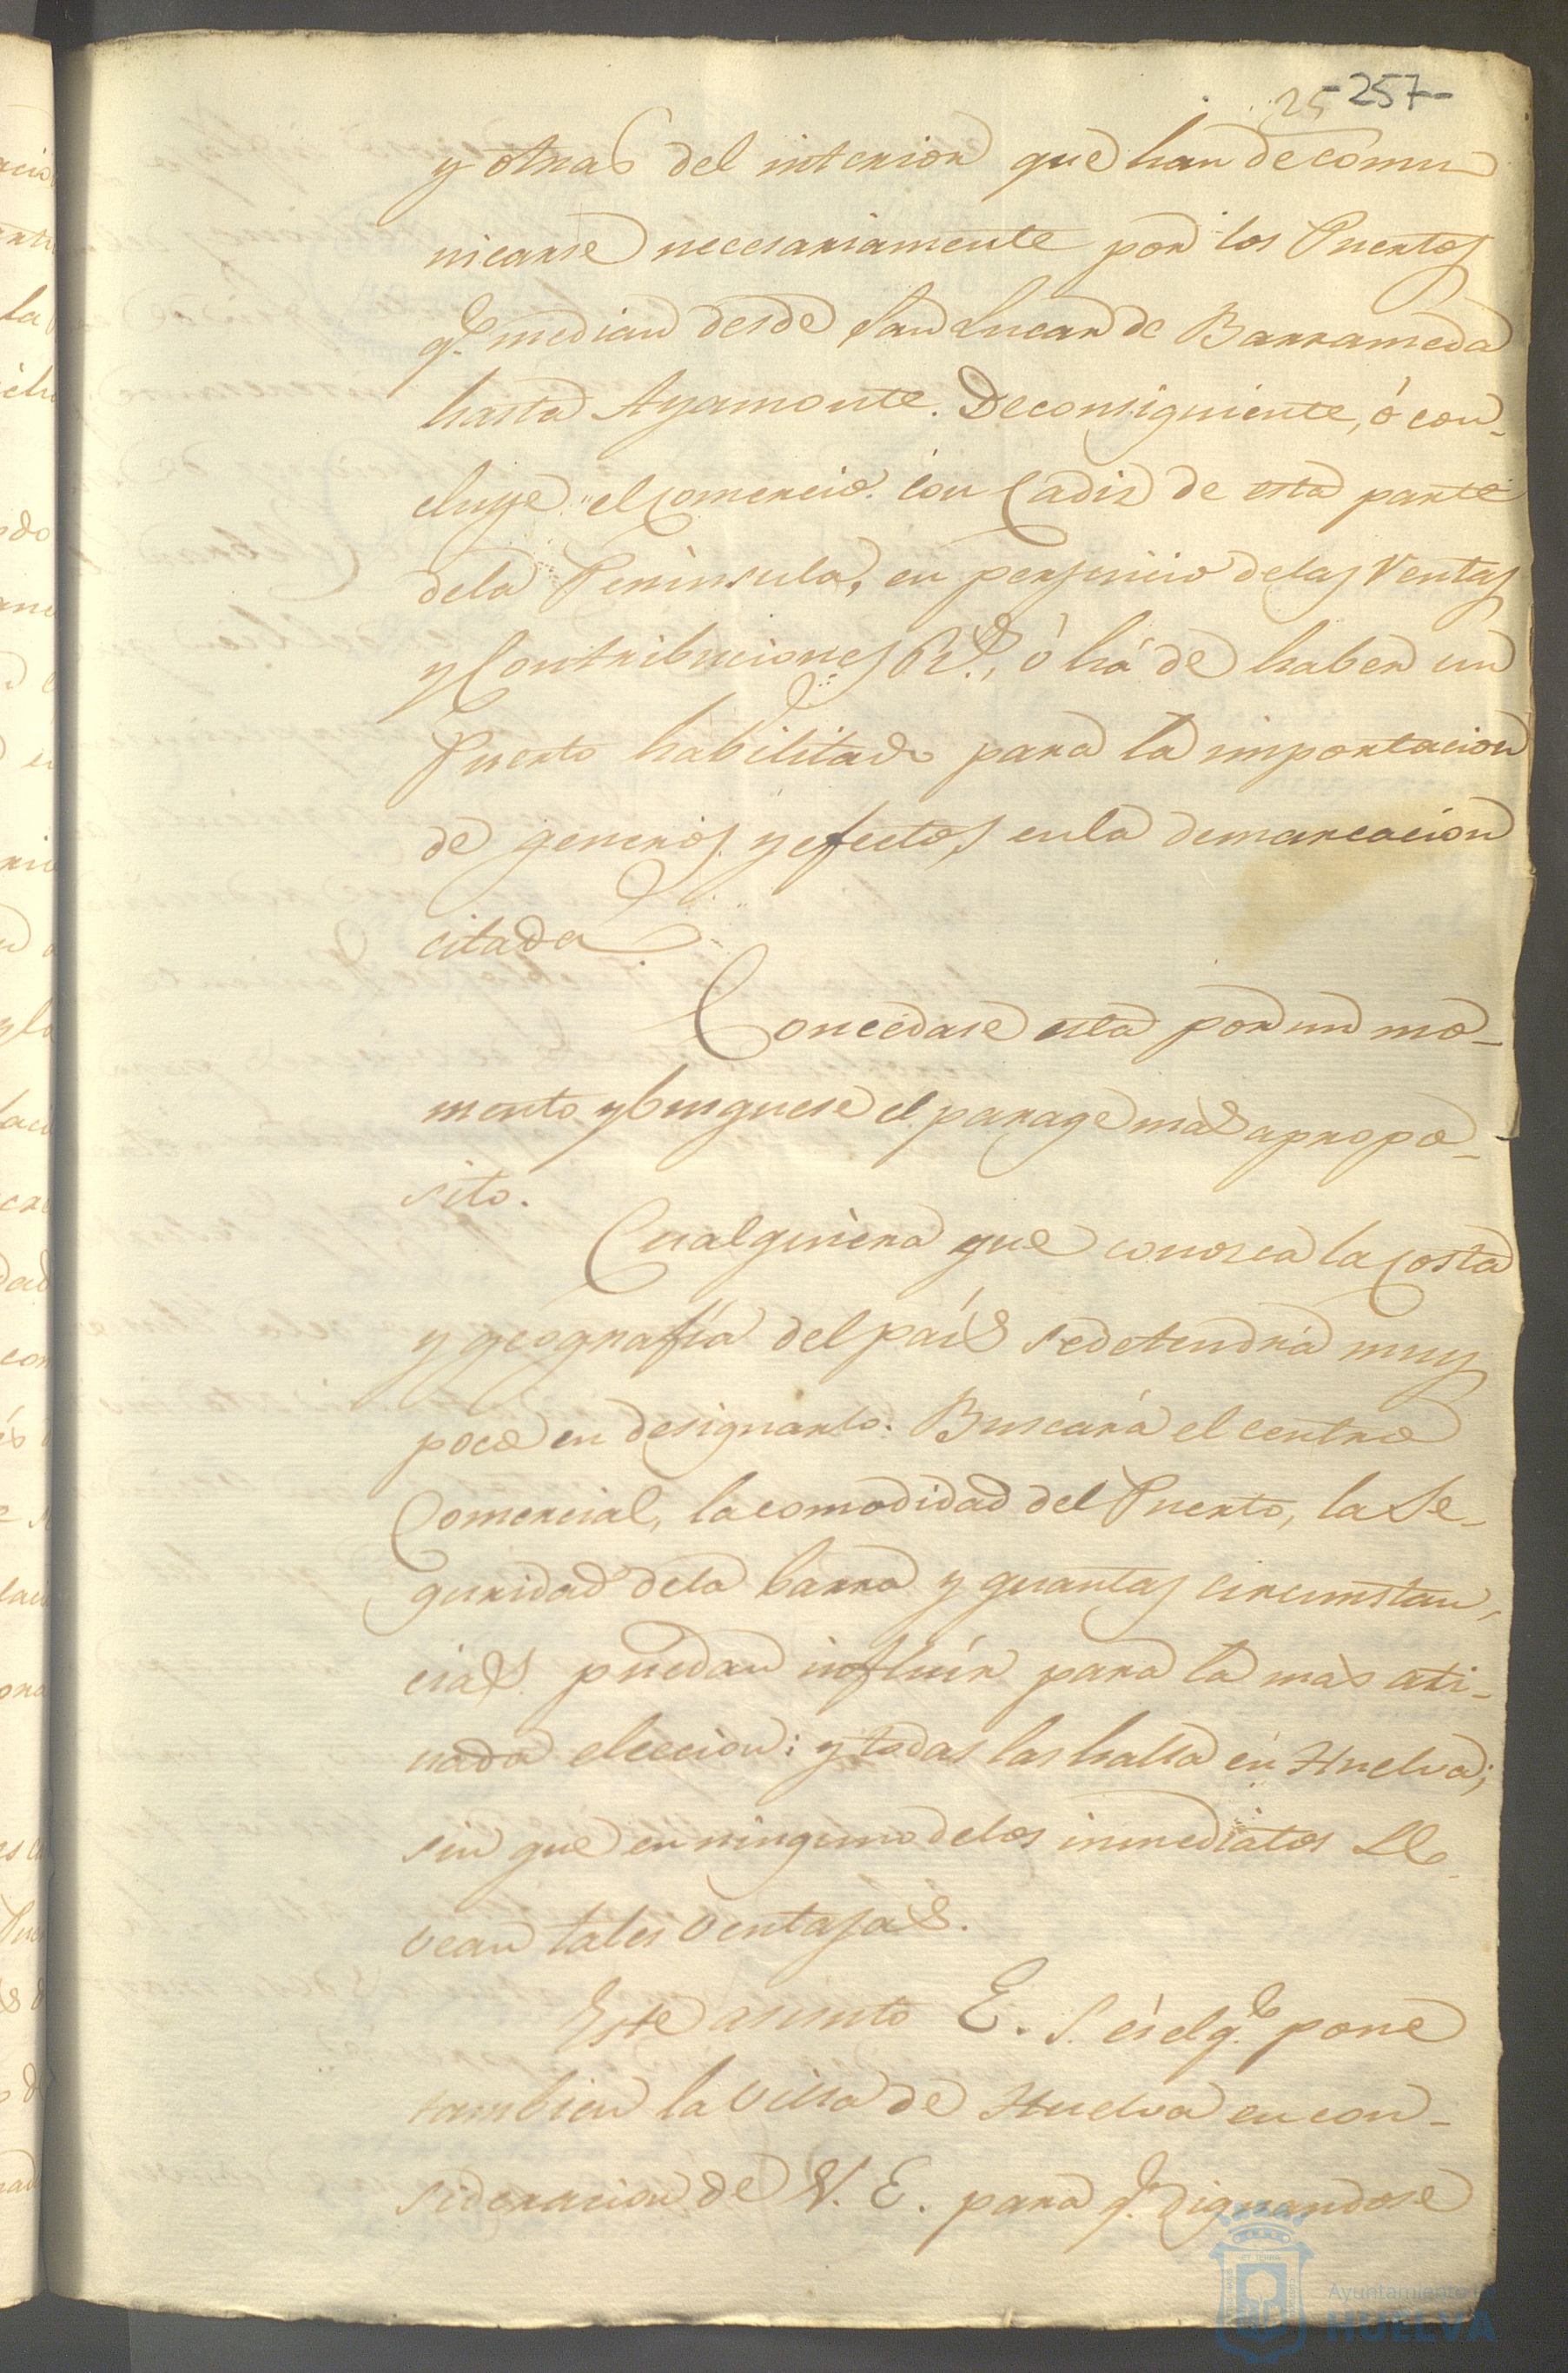 25 -257-
y otras del interior que han de comu
nicarse necesariamente por los Puertos
q.e median desde San Lucar de Barrameda
hasta Ayamonte. De consiguiente, ó con-
cluye el comercio con Cadiz de esta parte
dela Peninsula, en perjuicio delas Ventas
y Contribuciones R.s, ó há de haber un
Puerto habilitado para la importacion
de generos y efectos, enla demarcacion
citada
Concedase esta por un mo-
mento y busquese el parage mas apropo-
sito.
Cualquiera que conosca la Costa
y geografía del país sedetendrá muy
poco en designarlo. Buscará el centro
Comercial, la comodidad del Puerto, la Se-
guridad dela barra y quantas circunstan-
cias puedan influír para la mas ati-
nada eleccion: y todas las halla en Huelva;
sin que en ninguno delos inmediatos se
vean tales ventajas.
Este asunto E. S. es el q.e pone
tambien la Villa de Huelva en con-
sideracion de V. E. para q.e dignandose
Ayuntamiento de
HUELVA